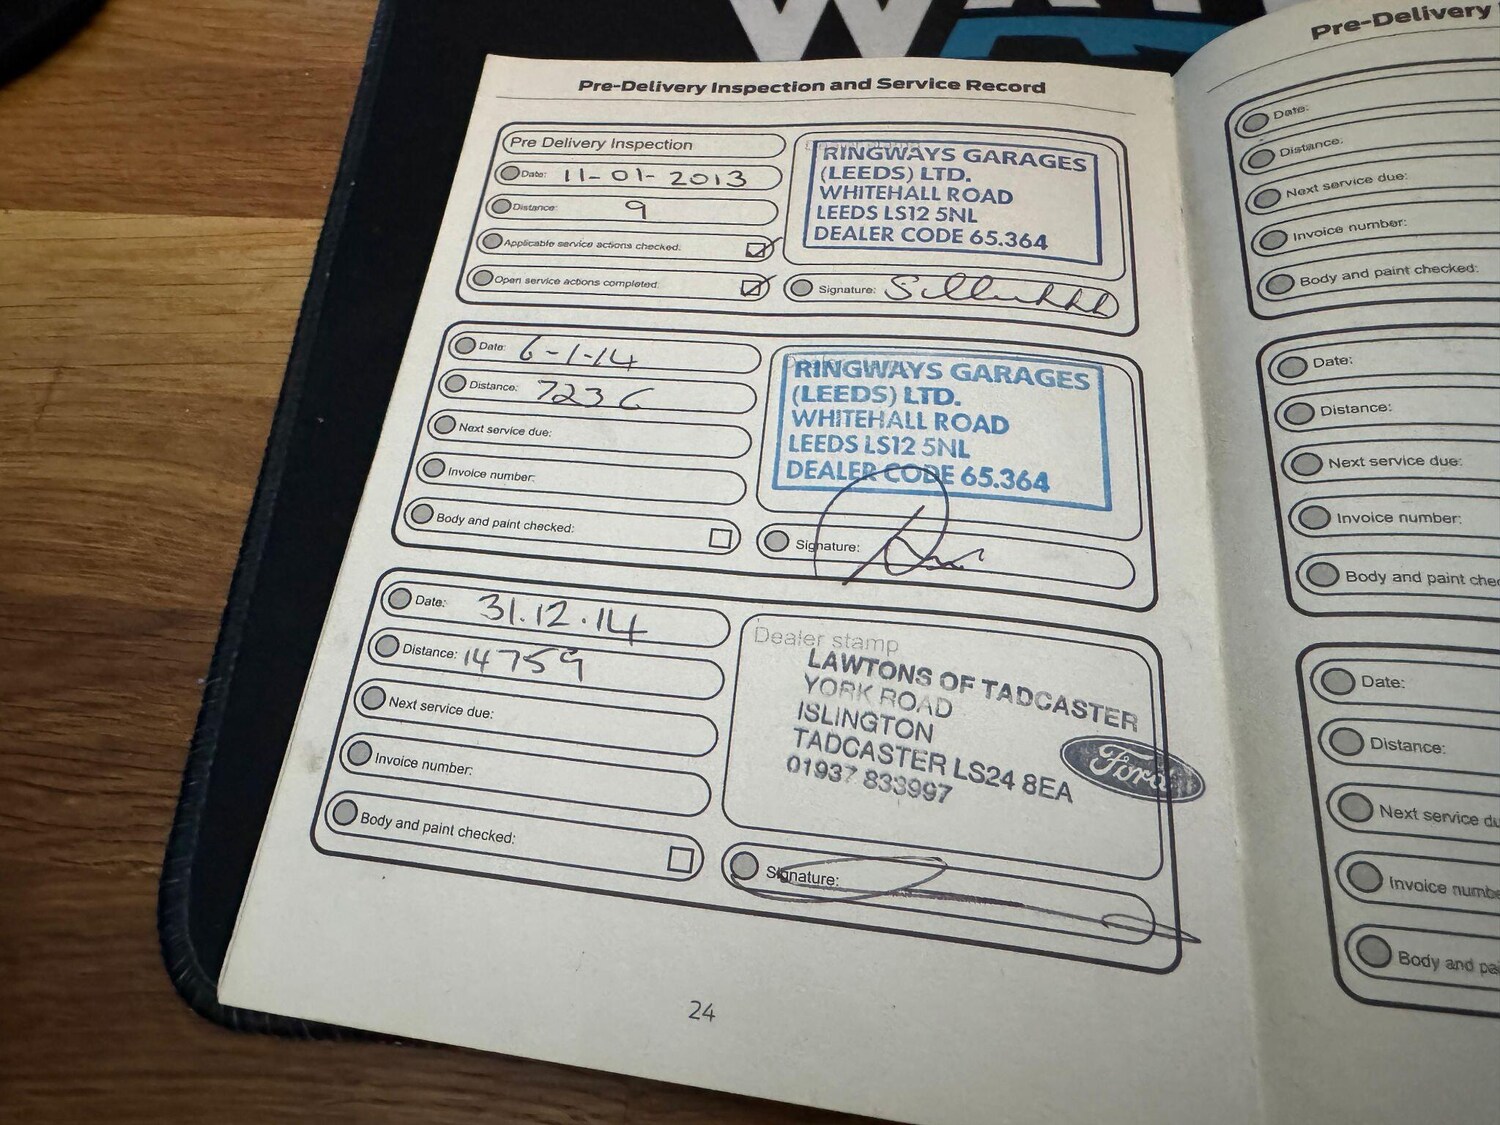 Pre-Delivery Inspection and Service Record
Pre Delivery Inspection
Date: 11-01-2013
Distance: 9
Applicable service actions checked:
Open service actions completed:
RINGWAYS GARAGES
(LEEDS) LTD.
WHITEHALL ROAD
LEEDS LS12 5NL
DEALER CODE 65.364
Signature:
Date: 6-1-14
Distance: 7236
Next service due:
Invoice number:
Body and paint checked:
RINGWAYS GARAGES
(LEEDS) LTD.
WHITEHALL ROAD
LEEDS LS12 5NL
DEALER CODE 65.364
Signature:
Date: 31.12.14
Distance: 14759
Next service due:
Invoice number:
Body and paint checked:
Dealer stamp
LAWTONS OF TADCASTER
YORK ROAD
ISLINGTON
TADCASTER LS24 8EA
01937 833997
Ford
Signature:
24
Pre-Delivery
Date:
Distance:
Next service due:
Invoice number:
Body and paint checked:
Date:
Distance:
Next service due:
Invoice number:
Body and paint che
Date:
Distance:
Next service du
Invoice numbe
Body and pai